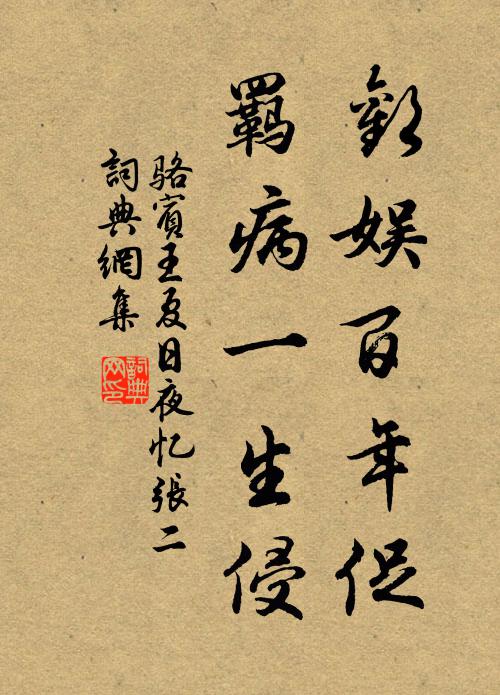 歡娱百年促
羈病一生侵
骆賓王夏日夜忆張二
詞典網集
詞典
网印